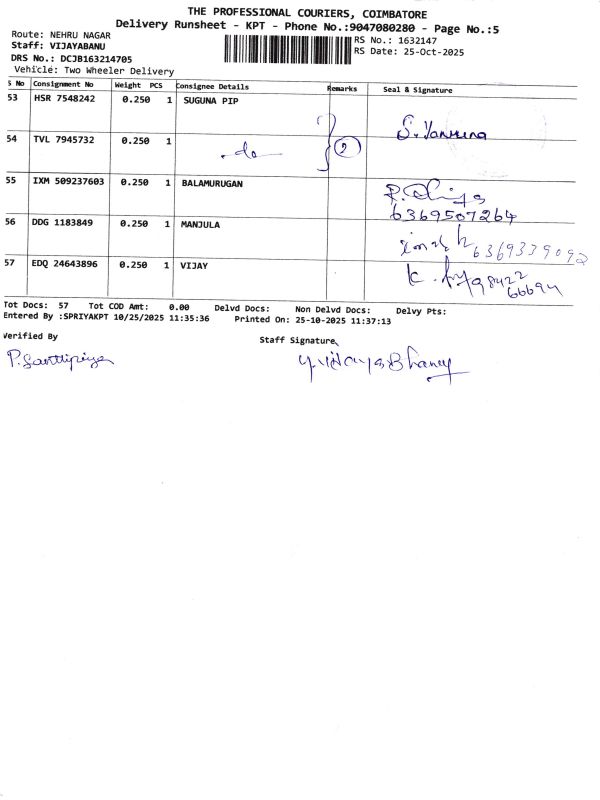 THE PROFESSIONAL COURIERS, COIMBATORE
Delivery Runsheet - KPT - Phone No.:9047080280 - Page No.:5
Route: NEHRU NAGAR
RS No.: 1632147
Staff: VIJAYABANU
RS Date: 25-Oct-2025
DRS No.: DCJB163214705
Vehicle: Two Wheeler Delivery
S No Consignment No Weight PCS Consignee Details Remarks Seal & Signature
53 HSR 7548242 0.250 1 SUGUNA PIP
54 TVL 7945732 0.250 1 do 2
55 IXM 509237603 0.250 1 BALAMURUGAN
6369507264
56 DDG 1183849 0.250 1 MANJULA 6369339092
57 EDQ 24643896 0.250 1 VIJAY 98422
66694
Tot Docs: 57 Tot COD Amt: 0.00 Delvd Docs: Non Delvd Docs: Delvy Pts:
Entered By :SPRIYAKPT 10/25/2025 11:35:36 Printed On: 25-10-2025 11:37:13
Verified By
Staff Signature